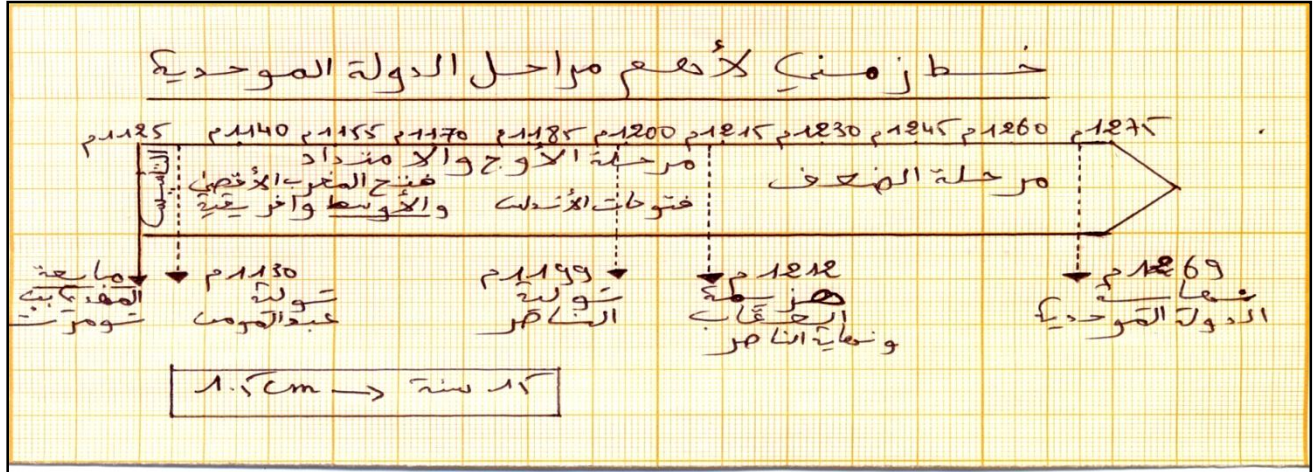 خط زمني لأهم مراحل الدولة الموحدية
1125م 1140م 1155م 1170م 1185م 1200م 1215م 1230م 1245م 1260م 1275م
التأسيس
مرحلة الأوج والامتداد
فتح المغرب الأقصى
والأوسط وافريقية
فتوحات الأندلس
مرحلة الضعف
مبايعة
المهدي بن
تومرت
1130م
تولية
عبد المومن
1199م
تولية
الناصر
1212م
هزيمة
العقاب
ونهاية الناصر
1269م
نهاية
الدولة الموحدية
15 سنة → 1.5 cm